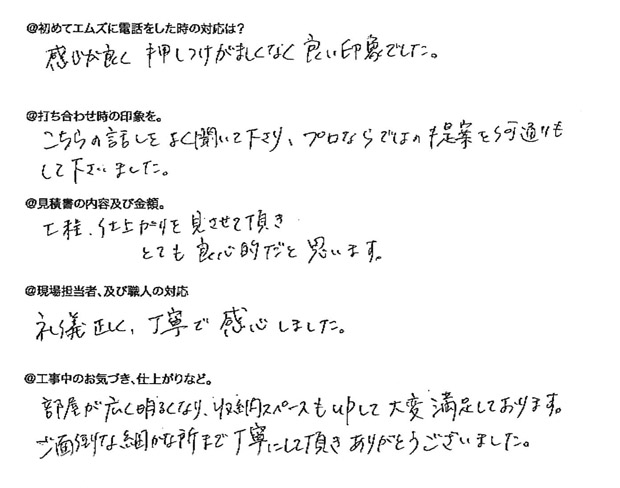 @初めてエムズに電話をした時の対応は？
感じが良く 押しつけがましくなく 良い印象でした。
@打ち合わせ時の印象を。
こちらの話しをよく聞いて下さり、プロならではの提案を何通りも
して下さいました。
@見積書の内容及び金額。
工程、仕上がりを見させて頂き
とても良心的だと思います。
@現場担当者、及び職人の対応
礼儀正しく、丁寧で感心しました。
@工事中のお気づき、仕上がりなど。
部屋が広く明るくなり、収納スペースもupして大変満足しております。
ご面倒な細かな所まで丁寧にして頂きありがとうございました。